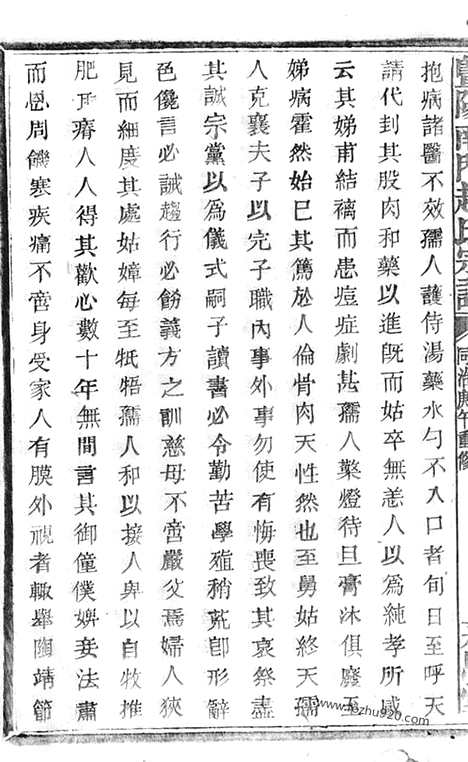 暨陽南氏趙氏宗譜 同治庚午重修
抱病諸醫不效孺人護侍湯藥水勺不入口者旬日至呼天
請代刲其股肉和藥以進旣而姑卒無恙人以爲純孝所感
云其娣甫結褵而患痘症劇甚孺人爇燈待旦膏沐俱廢至
娣病霍然始已其篤於人倫骨肉天性然也至舅姑終天孺
人克襄夫子以完子職內事外事勿使有悔喪致其哀祭盡
其誠宗黨以爲儀式嗣子讀書必令勤苦學殖稍荒卽形辭
色儳言必誡趨行必飭義方之訓慈母不啻嚴父焉婦人狹
見而細度其處姑嫜每至牴牾孺人和以接人卑以自牧推
肥取瘠人人得其歡心數十年無間言其御僮僕婢妾法肅
而恩周饑寒疾痛不啻身受家人有膜外視者輒舉陶靖節
www.fozhu920.com